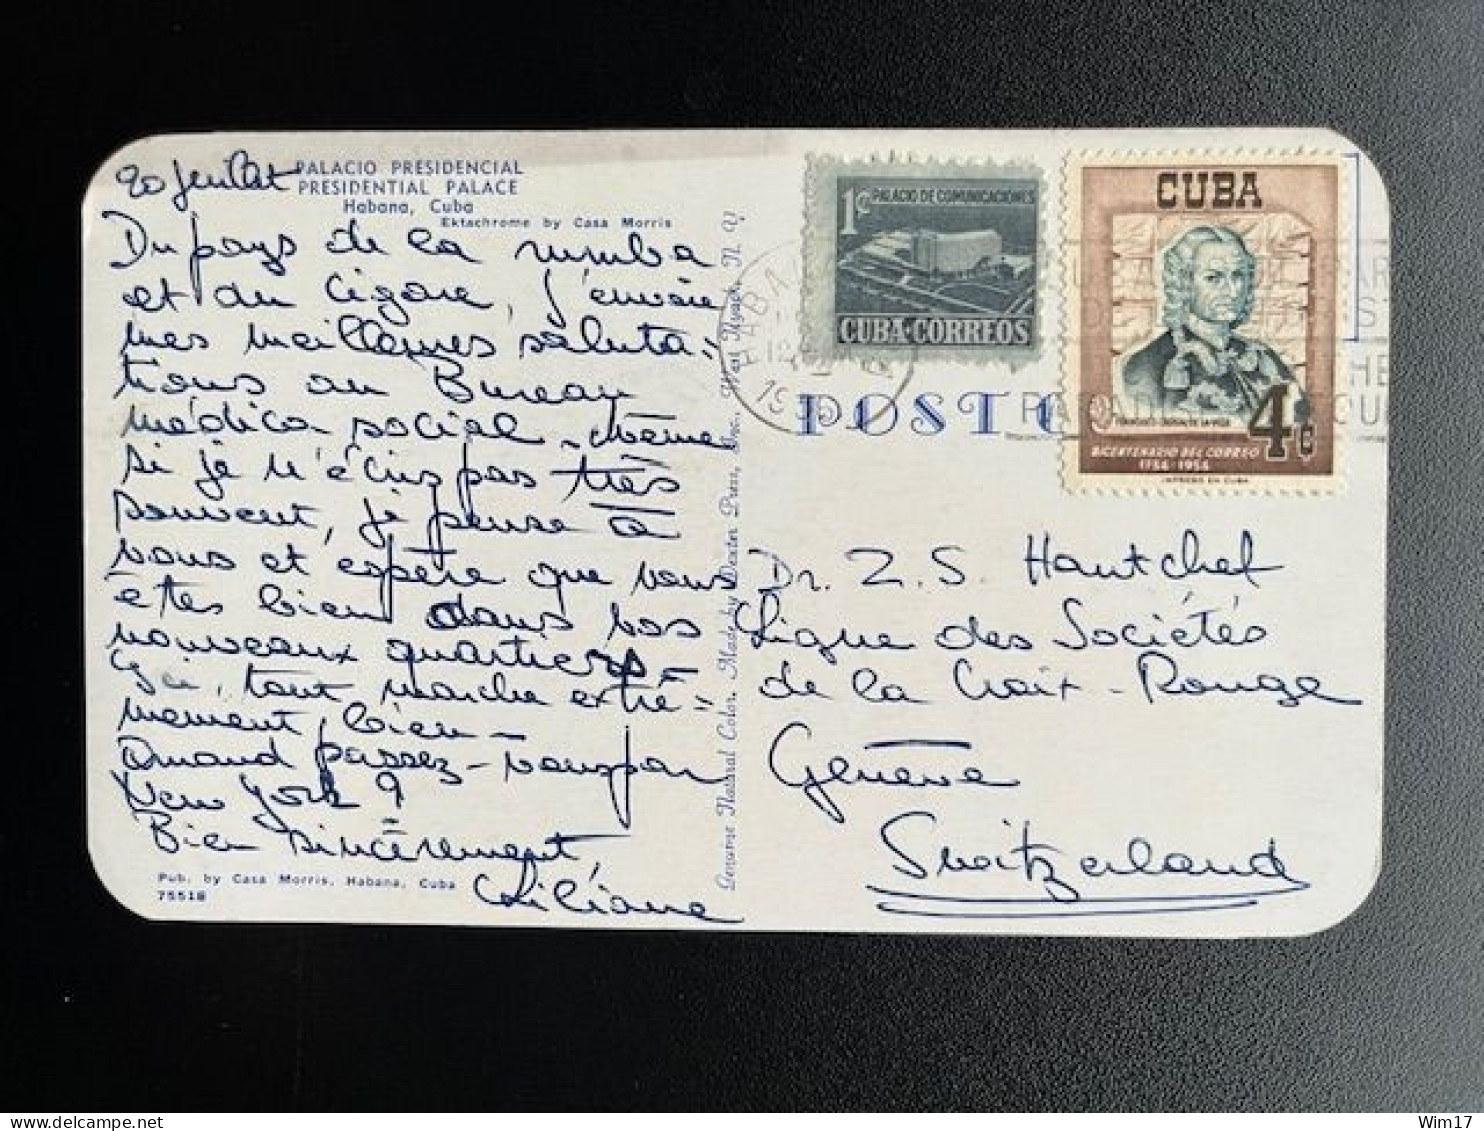 20 Juillet
PALACIO PRESIDENCIAL
PRESIDENTIAL PALACE
Habana, Cuba
Ektachrome by Casa Morris
Du pays de la rumba
et du Cigare, j'envoie
mes meilleures saluta=
tions au Bureau
médico social - même
si je n'écris pas très
souvent, je pense à
vous et espère que vous
êtes bien dans vos
nouveaux quartiers -
Ici, tout marche extrê=
mement bien -
Quand passez-vous par
New York ?
Bien sincèrement,
Liliane
Pub. by Casa Morris, Habana, Cuba
75518
Genuine Natural Color. Made by Dexter Press, Inc., West Nyack, N. Y.
1c PALACIO DE COMUNICACIONES
CUBA·CORREOS
CUBA
4c
BICENTENARIO DEL CORREO
1756 1956
IMPRESO EN CUBA
HABA
POST C
Dr. Z. S. Hantchef
Ligue des Sociétés
de la Croix-Rouge
Genève
Switzerland
Wim17